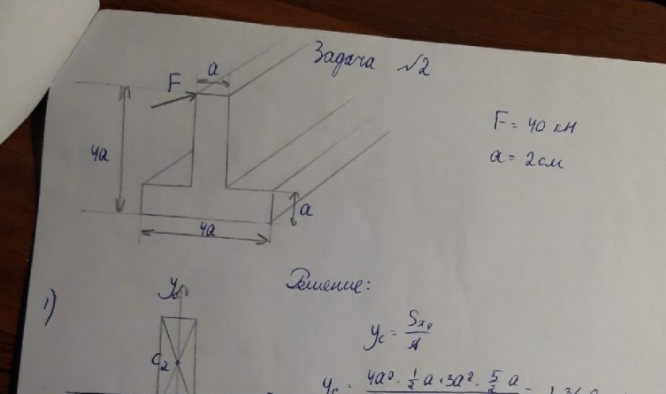 Задача №2
a
F
4a
a
4a
F = 40 кН
a = 2 см
Решение:
1)
y
C₂
yc = Sx₀ / A
yc = 4a² · 1/2 a + 3a² · 5/2 a